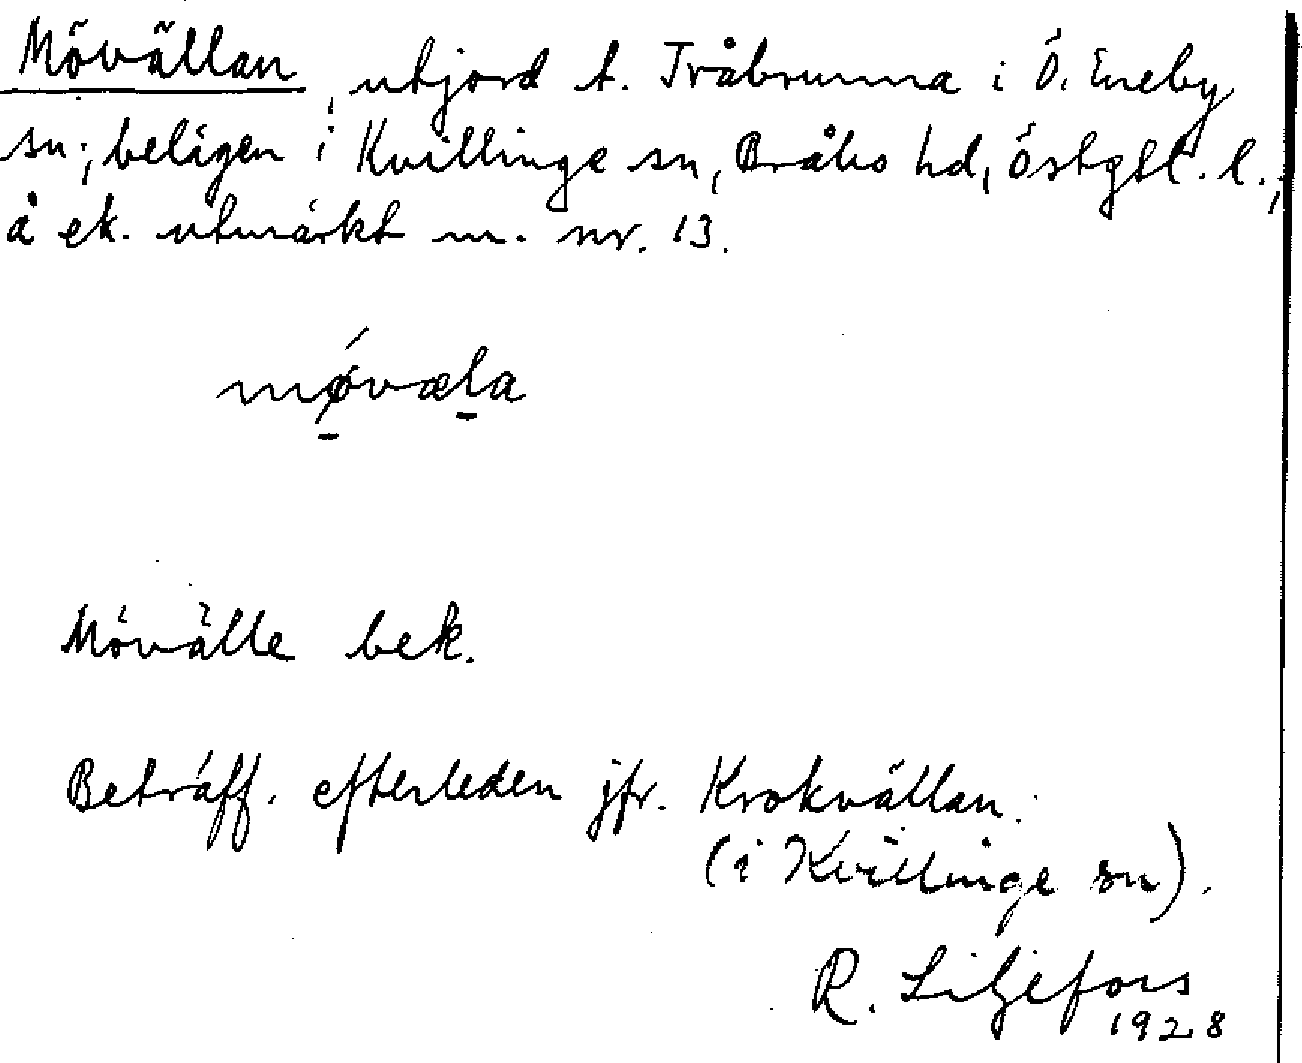 Mövällan, utjord t. Tråbrunna i Ö. Eneby
sn; belägen i Kvillinge sn, Bråbo hd, Östgtl. l.,
å ek. utmärkt m. nr. 13.
mǿ̱væḻa
Mövälle bek.
Beträff. efterleden jfr. Krokvällan.
(i Kvillinge sn).
R. Liljefors
1928